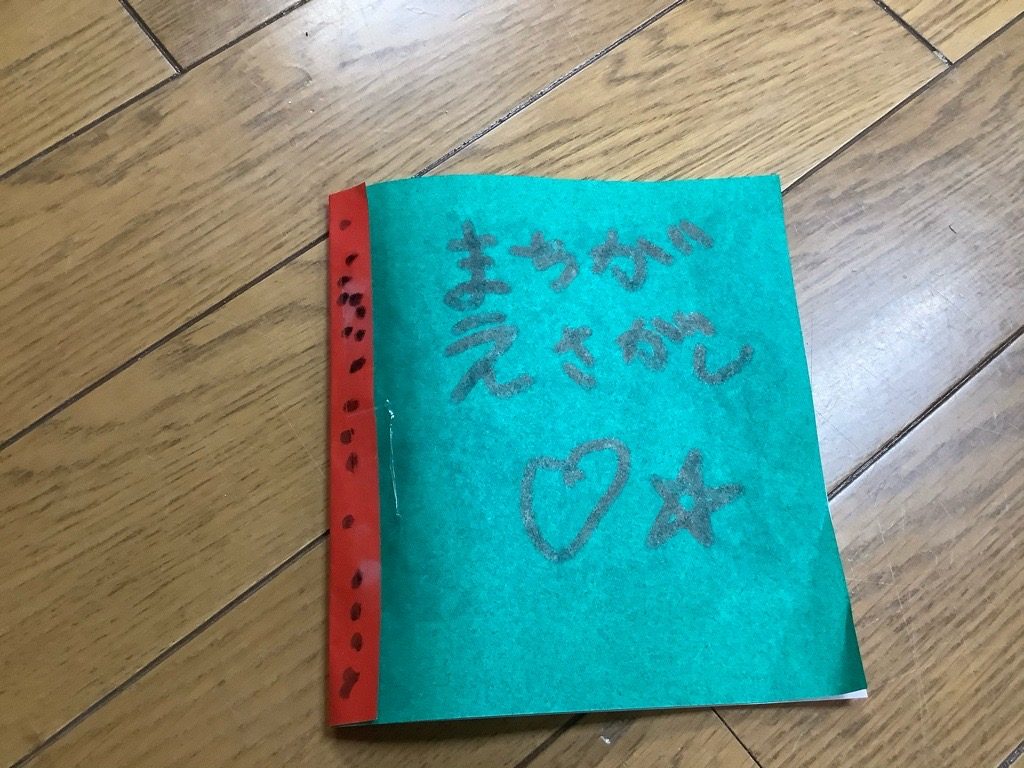 まちが
えさがし